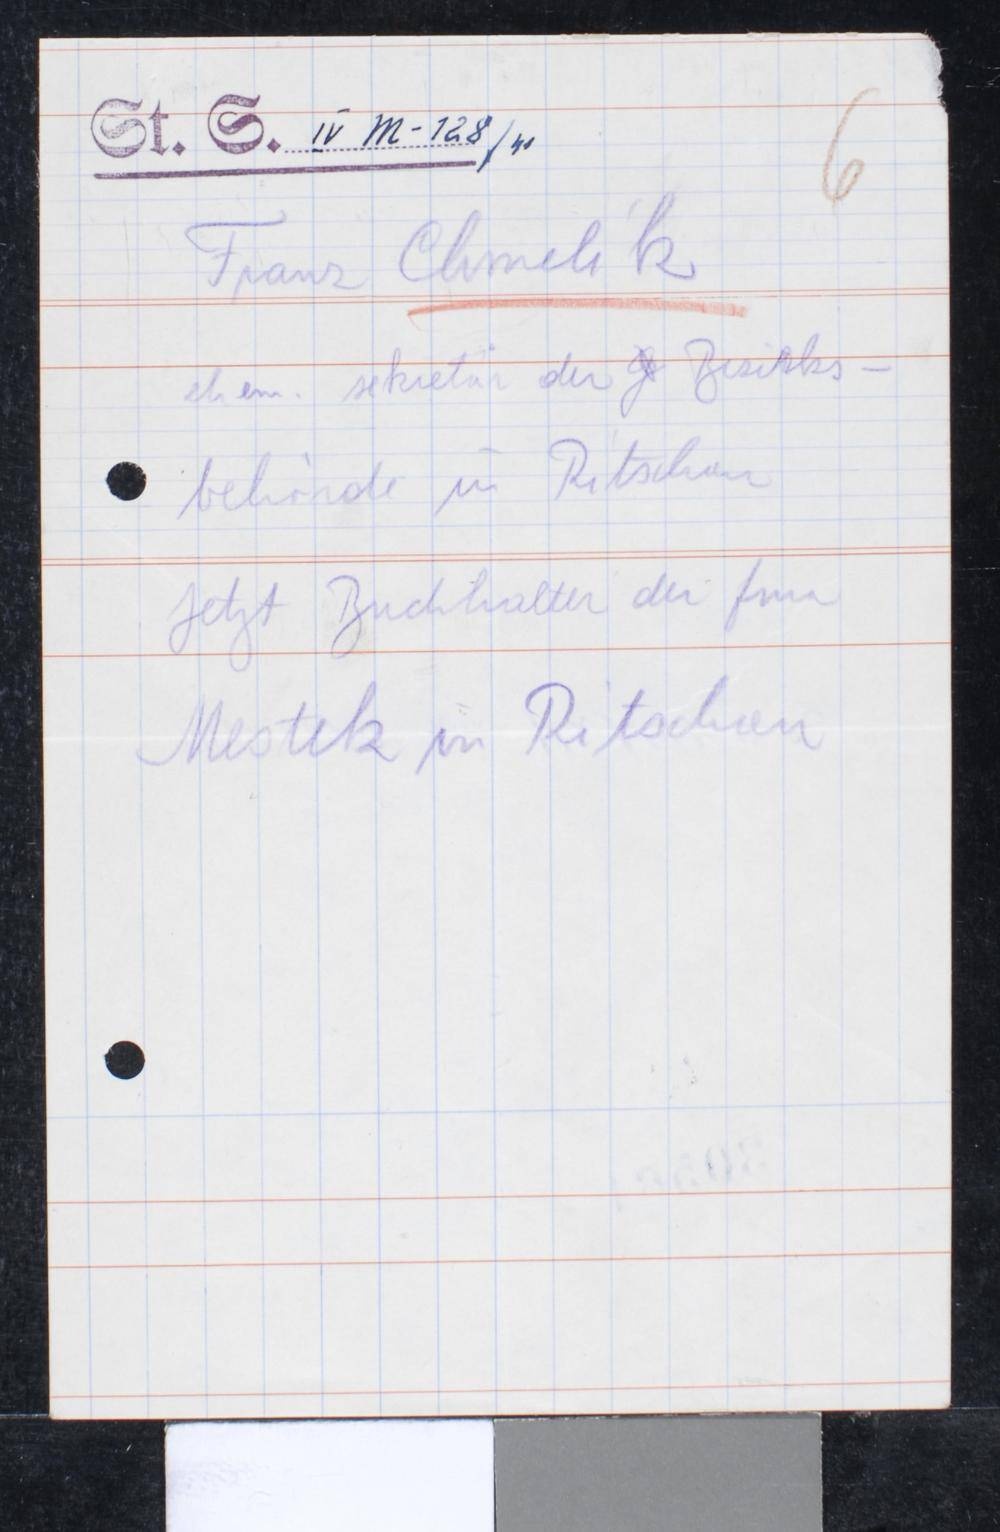 St. S. IV M-128/41
6
Franz Chmelík
ehem. sekretär der Bezirks-
behörde in Ritschan
jetzt Buchhalter der fma
Mestek in Ritschan